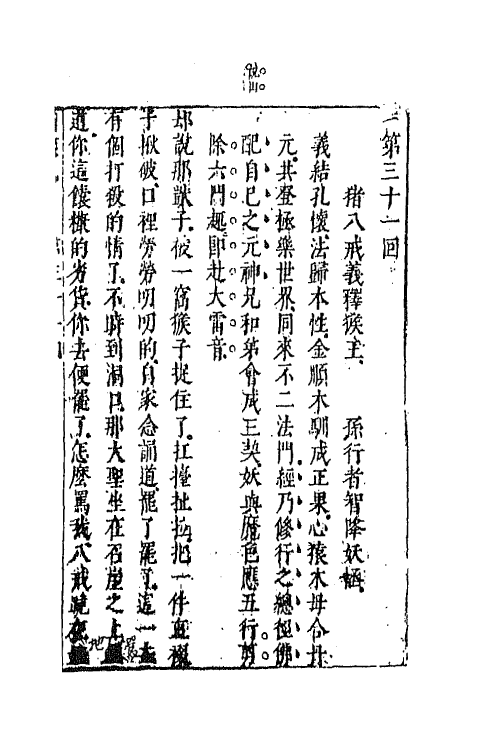 第三十一回
猪八戒義釋猴王 孫行者智降妖𢘊
義結孔懷法歸本性金順木馴成正果心猿木母合丹
元共登極樂世界同來不二法門經乃修行之總徑佛
配自己之元神兄和弟會成三契妖與魔色應五行剪
除六門趣即赴大雷音
却說那獃子被一窩猴子捉住了扛擡扯拉把一件直裰
子揪破口裡勞勞叨叨的自家念誦道罷了罷了這一去
有個打殺的情了不時到洞口那大聖坐在石崖之上罵
道你這饢糠的劣貨你去便罷了怎麼罵我八戒跪在地